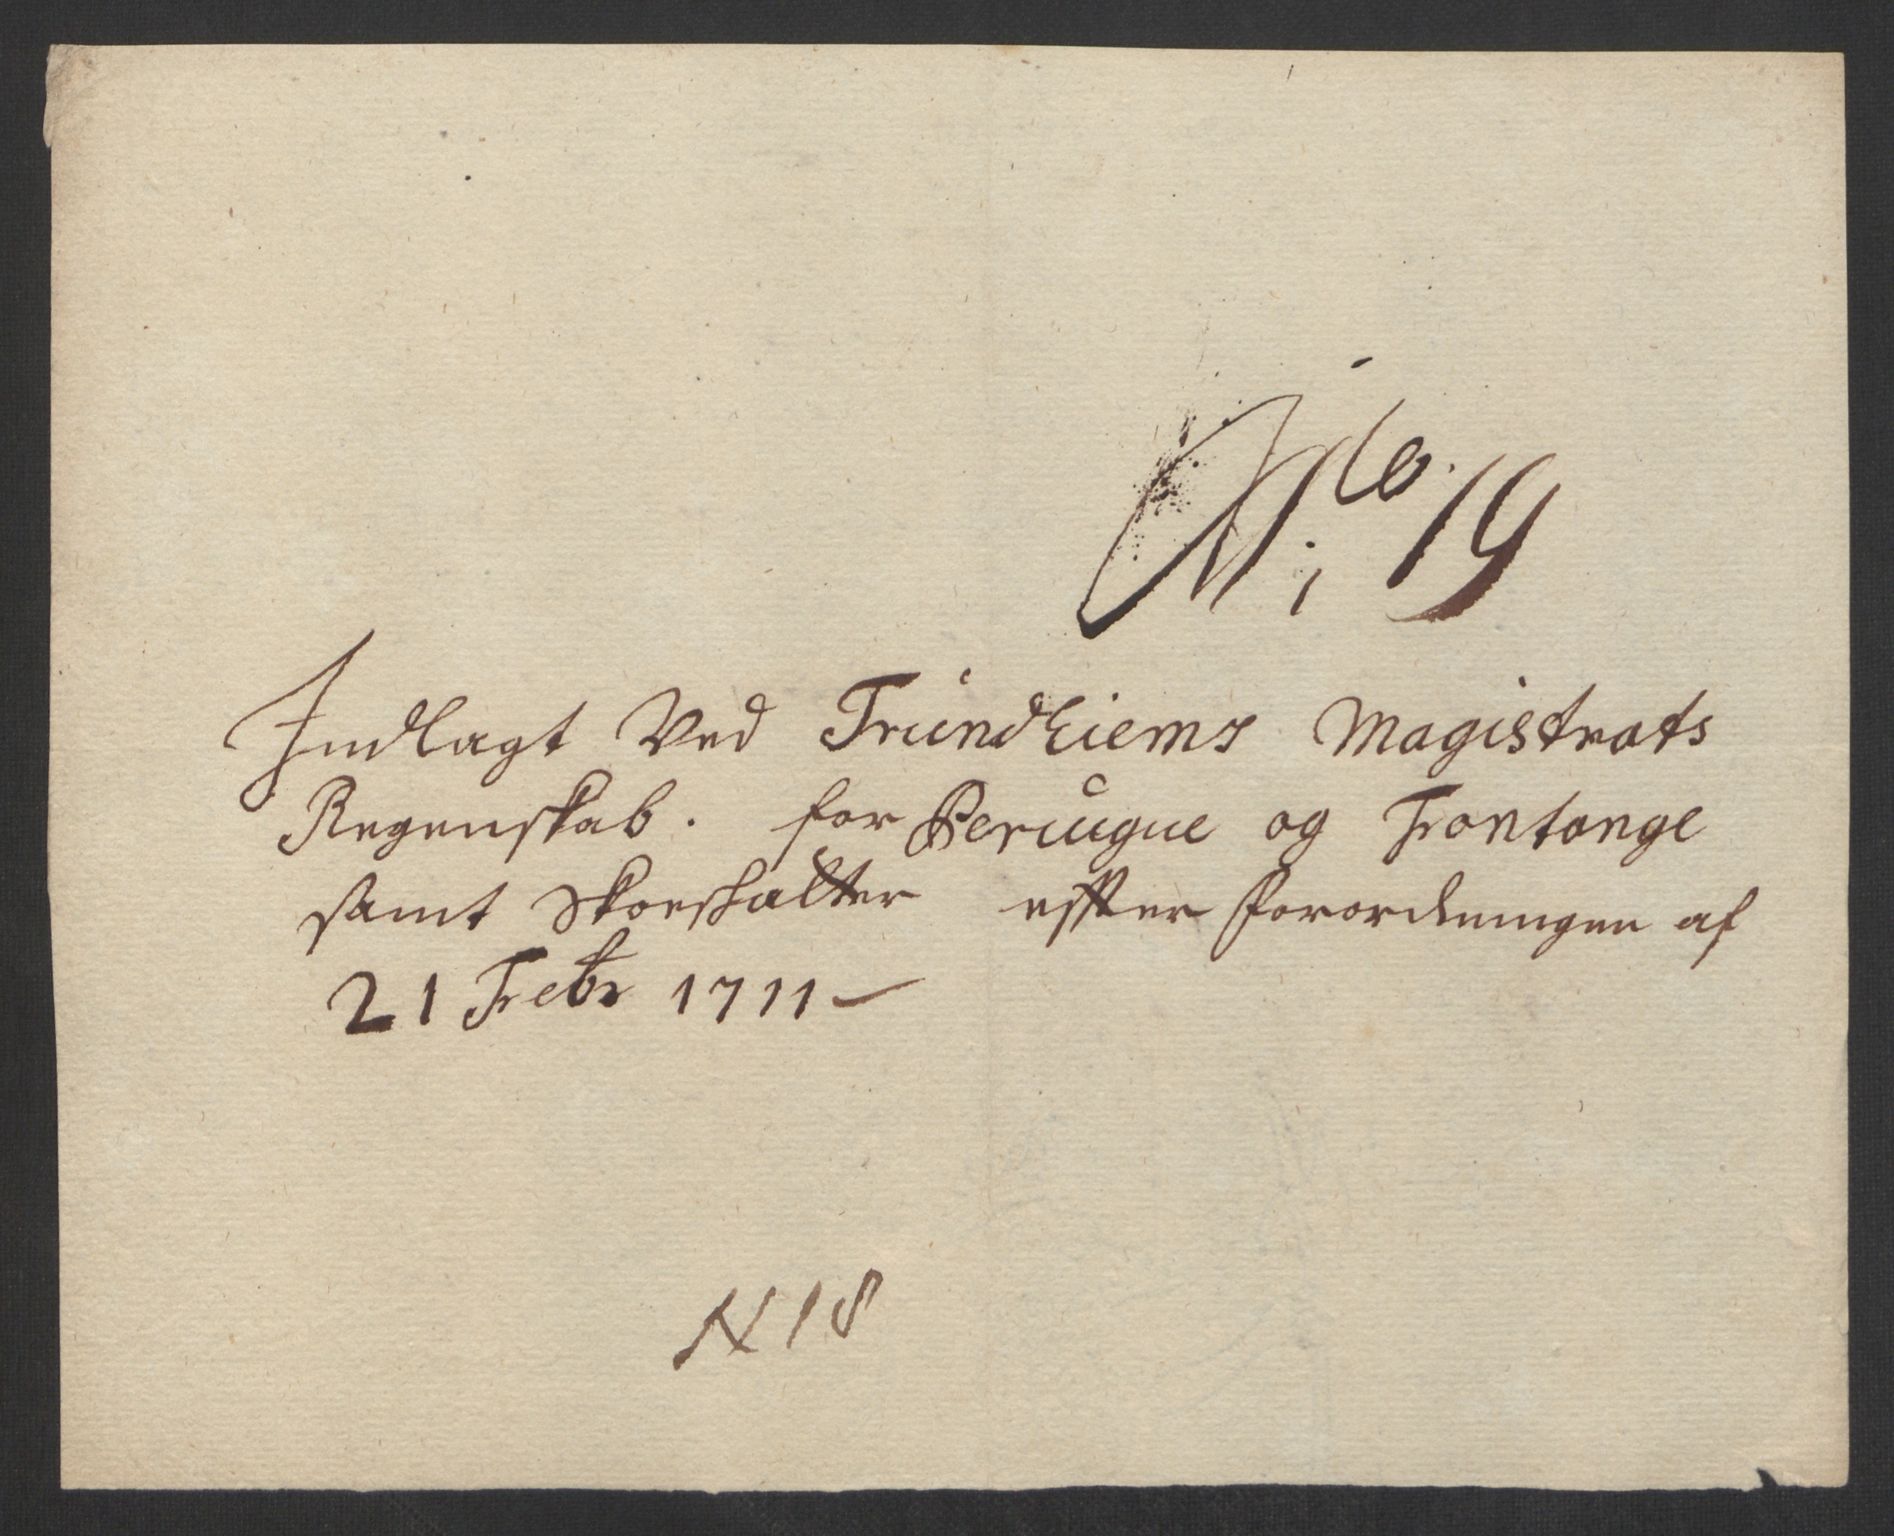 No. 19
Indlagt Ved Trundhiems Magistrats
Regenskab. for Peruque og Frontange
samt Skoeskatter effter forordningen af
21 Febr 1711 –
N 18